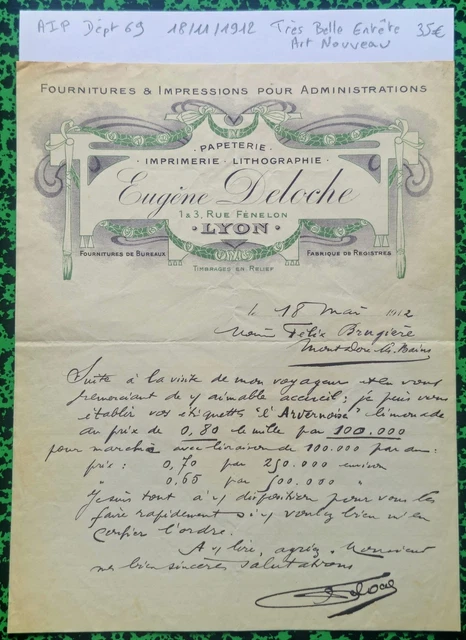 AIP Dépt 69 18/11/1912 Très Belle Entête 35€
Art Nouveau
FOURNITURES & IMPRESSIONS POUR ADMINISTRATIONS
· PAPETERIE ·
· IMPRIMERIE · LITHOGRAPHIE ·
Eugène Deloche
1 à 3, RUE FÉNELON
· LYON ·
FOURNITURES DE BUREAUX
FABRIQUE DE REGISTRES
TIMBRAGES EN RELIEF
le 18 Mai 1912
Félix Brugière
Mont Dore les Bains
Suite à la visite de mon voyageur et en vous
remerciant de s/ aimable accueil; je puis vous
établir vos étiquettes "l'Arvernoise" limonade
au prix de 0,80 le mille par 100.000
pour marché avec livraison de 100.000 par an:
prix: 0,70 par 250.000 environ
0,65 par 500.000 "
Je suis tout à v/ disposition pour vous les
faire rapidement si v/ voulez bien m'en
confier l'ordre.
A v/ lire, agréez, Monsieur
mes bien sincères salutations
Deloche